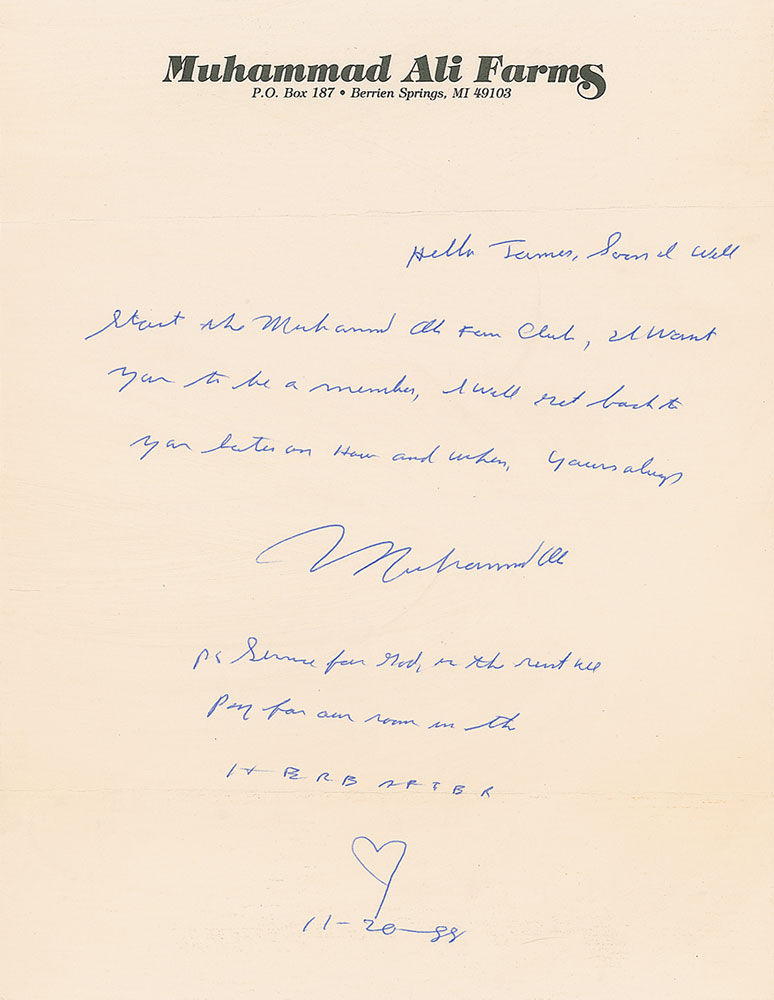 Muhammad Ali Farms
P.O. Box 187 • Berrien Springs, MI 49103
Hello James, Soon I will
Start the Muhammad Ali Fan Club, I Want
you to be a member, I will get back to
you later on How and when, Yours always
Muhammad Ali
ps Service for God, is the rent we
Pay for our room in the
HEREAFTER
11-20-88